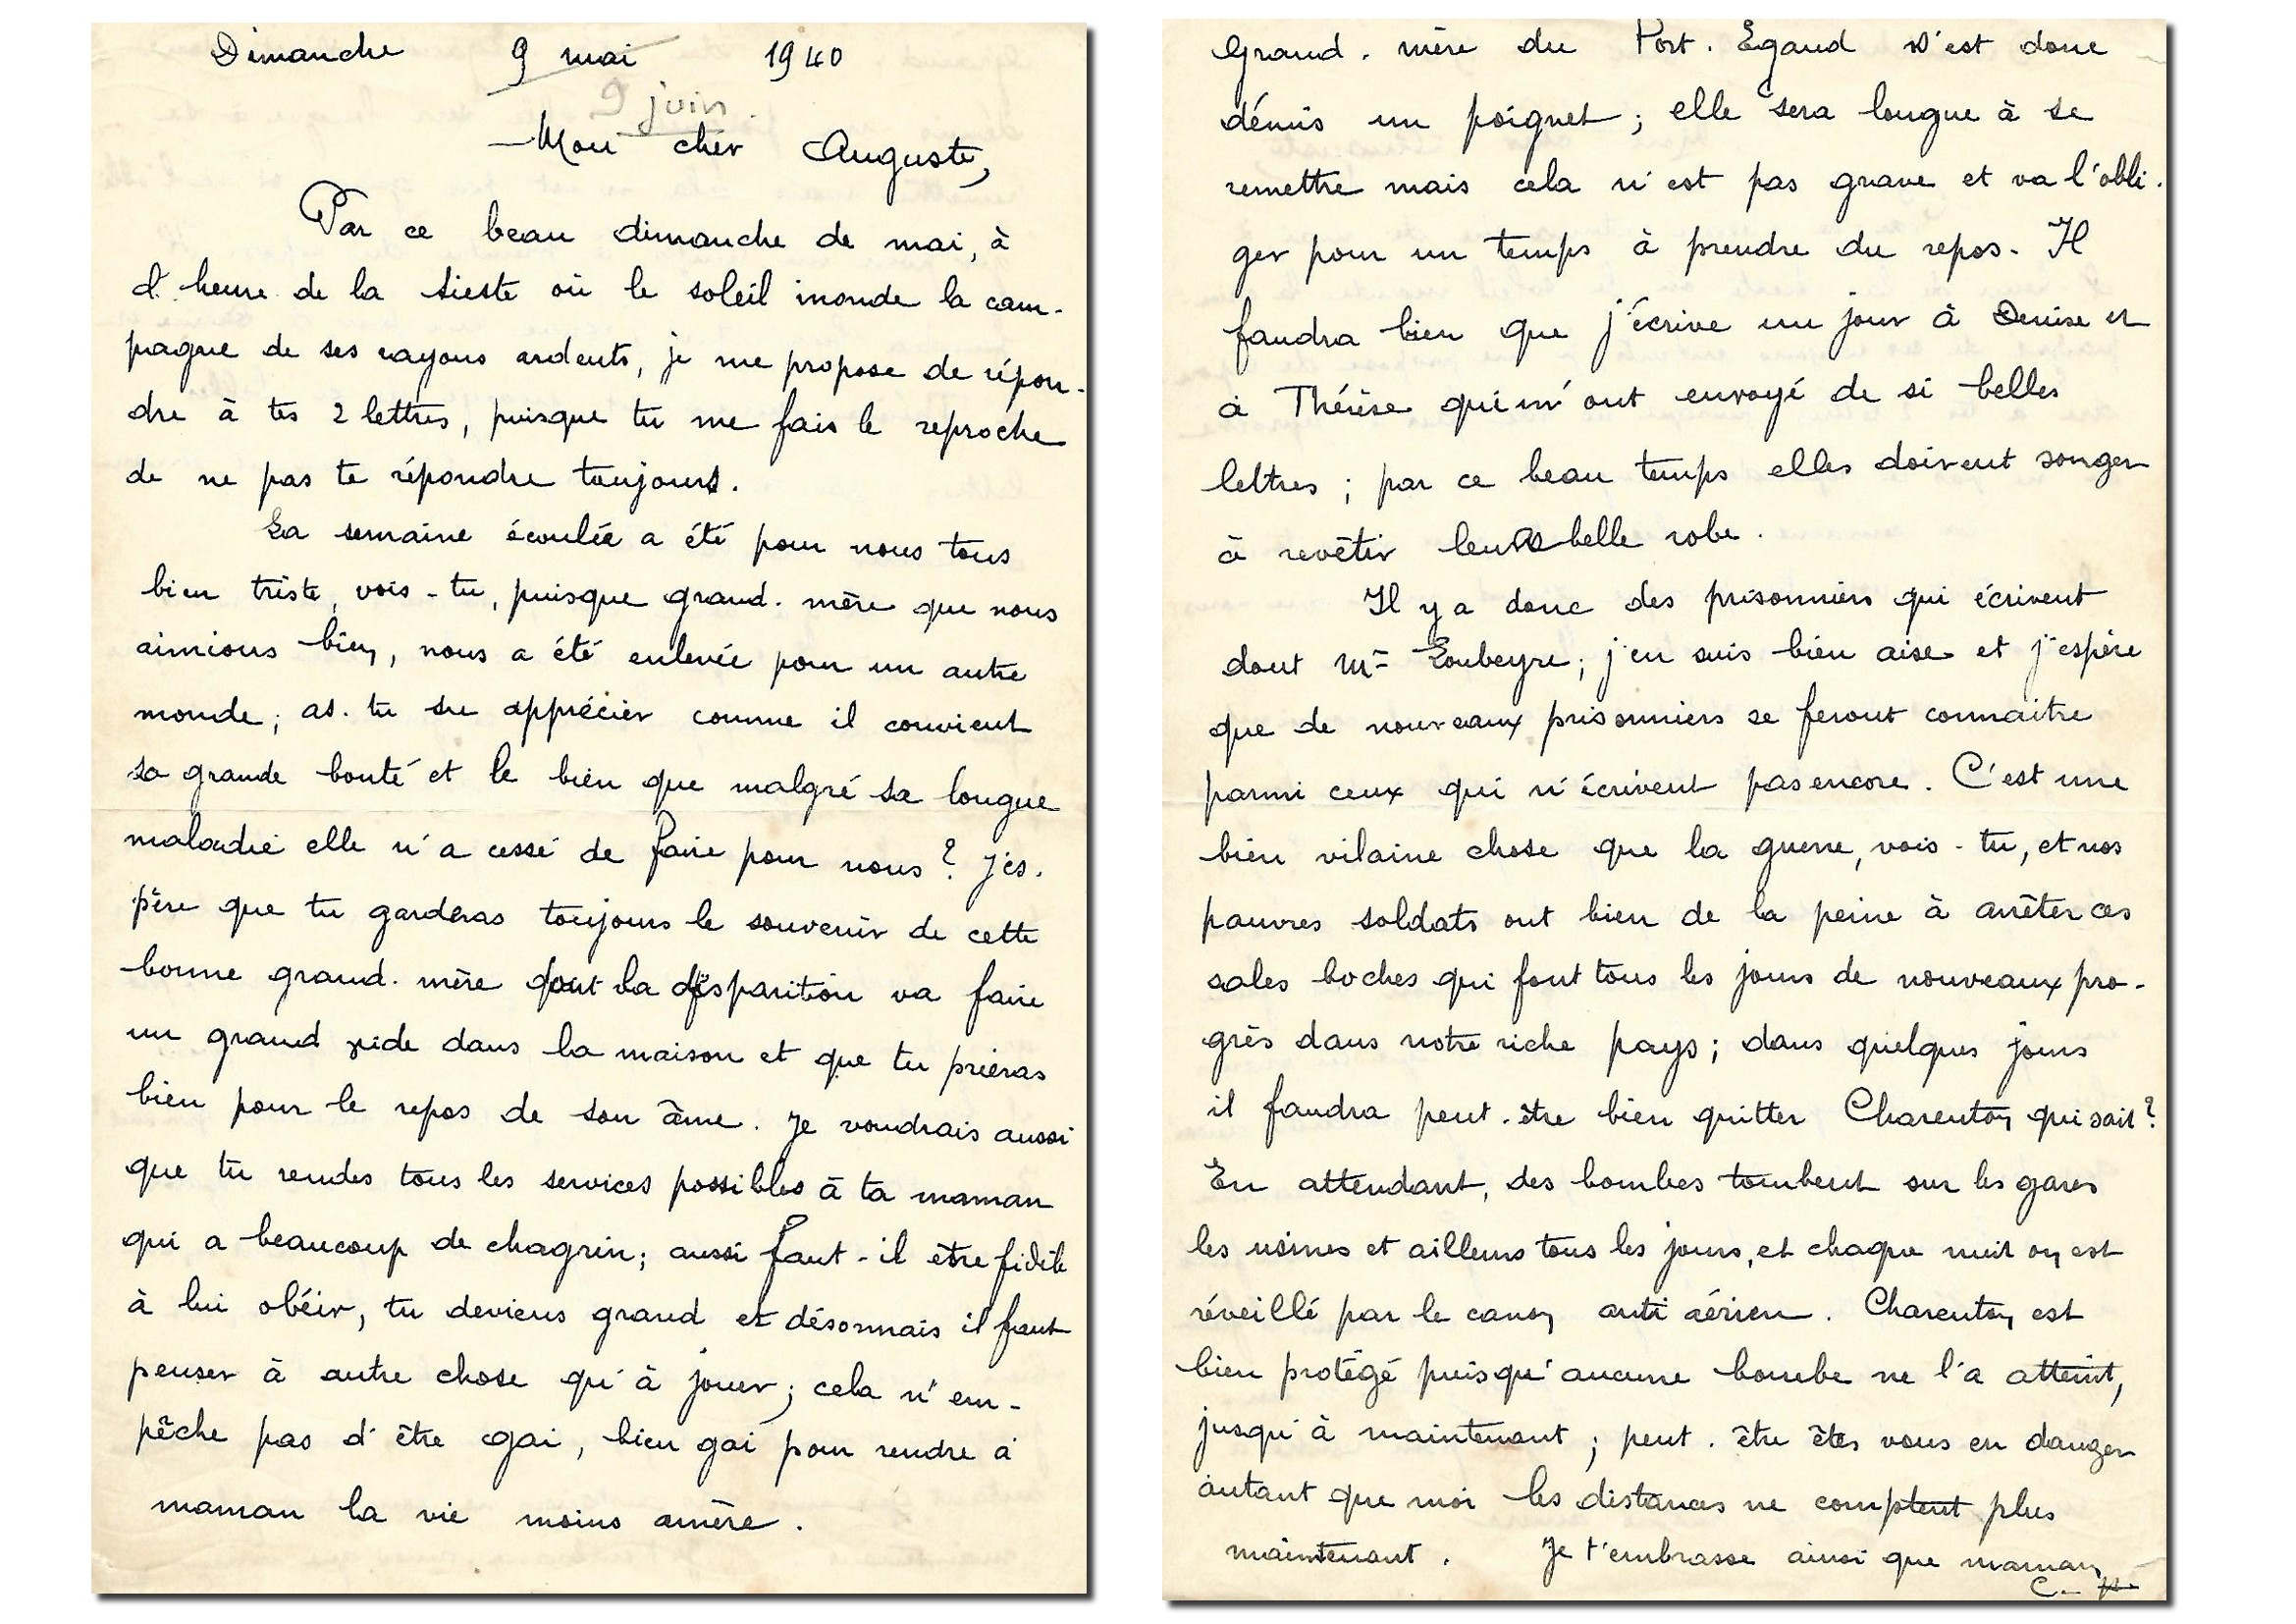 Dimanche 9 mai 1940
9 juin.
Mon cher Auguste,
Par ce beau dimanche de mai, à
l'heure de la sieste où le soleil inonde la cam-
pagne de ses rayons ardents, je me propose de répon-
dre à tes 2 lettres, puisque tu me fais le reproche
de ne pas te répondre toujours.
La semaine écoulée a été pour nous tous
bien triste, vois-tu, puisque grand-mère que nous
aimions bien, nous a été enlevée pour un autre
monde; as-tu su apprécier comme il convient
sa grande bonté et le bien que malgré sa longue
maladie elle n'a cessé de faire pour nous? J'es-
père que tu garderas toujours le souvenir de cette
bonne grand-mère dont la disparition va faire
un grand vide dans la maison et que tu prieras
bien pour le repos de son âme. Je voudrais aussi
que tu rendes tous les services possibles à ta maman
qui a beaucoup de chagrin; aussi faut-il être fidèle
à lui obéir, tu deviens grand et désormais il faut
penser à autre chose qu'à jouer; cela n'em-
pêche pas d'être gai, bien gai pour rendre à
maman la vie moins amère.
Grand-mère du Port-Egaud s'est donc
démis un poignet; elle sera longue à se
remettre mais cela n'est pas grave et va l'obli-
ger pour un temps à prendre du repos. Il
faudra bien que j'écrive un jour à Denise et
à Thérèse qui m'ont envoyé de si belles
lettres; par ce beau temps elles doivent songer
à revêtir leur belle robe.
Il y a donc des prisonniers qui écrivent
dont Mr Loubeyre; j'en suis bien aise et j'espère
que de nouveaux prisonniers se feront connaitre
parmi ceux qui n'écrivent pas encore. C'est une
bien vilaine chose que la guerre, vois-tu, et nos
pauvres soldats ont bien de la peine à arrêter ces
sales boches qui font tous les jours de nouveaux pro-
grès dans notre riche pays; dans quelques jours
il faudra peut-être bien quitter Charenton qui sait?
En attendant, des bombes tombent sur les gares
les usines et ailleurs tous les jours, et chaque nuit on est
réveillé par le canon anti aérien. Charenton est
bien protégé puisqu'aucune bombe ne l'a atteint,
jusqu'à maintenant; peut-être êtes vous en danger
autant que moi les distances ne comptent plus
maintenant. Je t'embrasse ainsi que maman